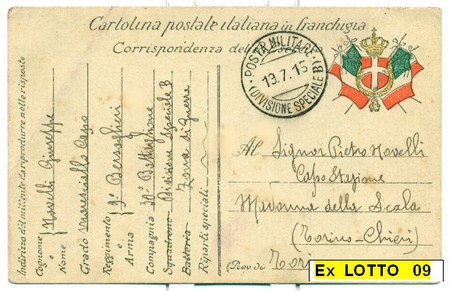 Cartolina postale italiana in franchigia
Corrispondenza del
POSTA MILITARE
13.7.15
(DIVISIONE SPECIALE B)
Indirizzo del militare da riprodurre nelle risposte
Cognome e Nome Novelli Giuseppe
Grado Maresciallo Capo
Reggimento e Arma 9° Bersaglieri
Compagnia 30° Battaglione
Squadrone Divisione Speciale B
Batteria Zona di guerra
Riparti speciali
Al Signor Pietro Novelli
Capo Stazione
Madonna della Scala
(Torino-Chieri)
(Prov. di
Ex LOTTO 09